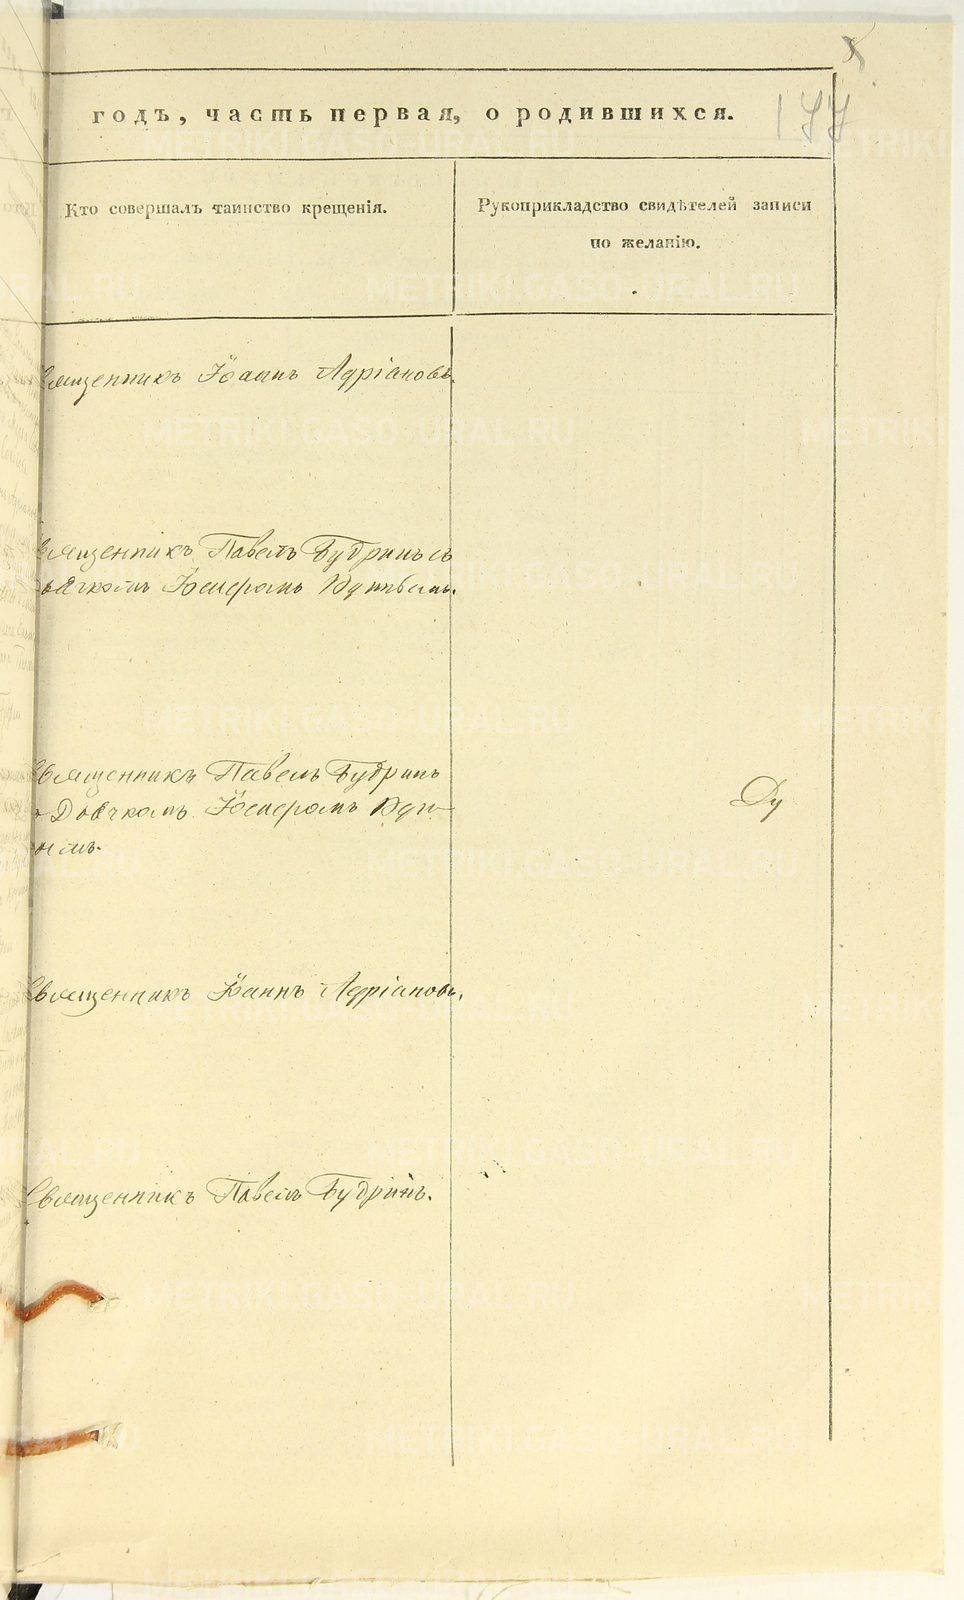 8
177
годъ, часть первая, о родившихся.
Кто совершалъ таинство крещенія.
Рукоприкладство свидѣтелей записи
по желанію.
Священникъ Іоаннъ Адріановъ.
Священникъ Павелъ Будринъ съ
Дьячкомъ
Священникъ Павелъ Будринъ
Дьячкомъ
Священникъ Іоаннъ Адріановъ.
Священникъ Павелъ Будринъ.
METRIKI.GASO-URAL.RU